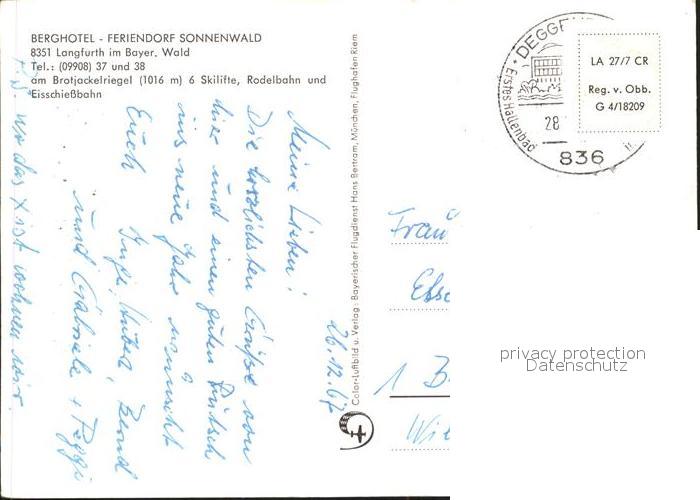 BERGHOTEL - FERIENDORF SONNENWALD
8351 Langfurth im Bayer. Wald
Tel.: (09908) 37 und 38
am Brotjackelriegel (1016 m) 6 Skilifte, Rodelbahn und
Eisschießbahn
26.12.67
Meine Lieben!
Die herzlichsten Grüße von
hier und einen guten Rutsch
ins neue Jahr wünscht
Euch
und Gabriele + Peggi
wo das x ist wohnen wir.
Color-Luftbild u. Verlag: Bayerischer Flugdienst Hans Bertram, München, Flughafen Riem
DEGGE
Erstes Hallenbad
28
836
LA 27/7 CR
Reg. v. Obb.
G 4/18209
Frau
1 B
privacy protection
Datenschutz